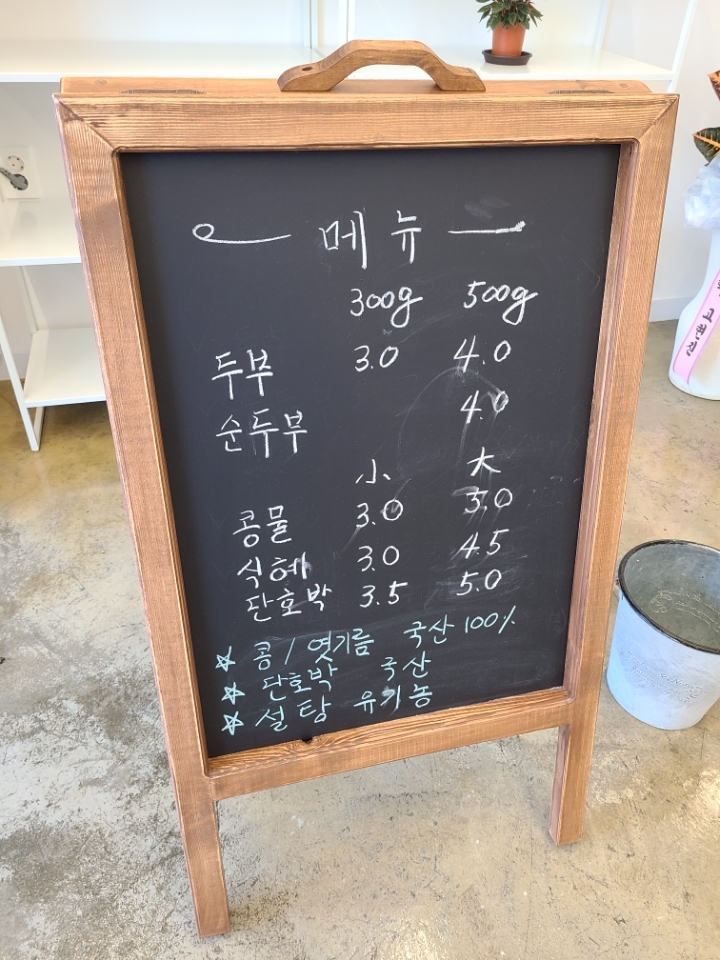 메뉴
300g 500g
두부 3.0 4.0
순두부 4.0
小 大
콩물 3.0 5.0
식혜 3.0 4.5
단호박 3.5 5.0
☆ 콩/엿기름 국산 100%
☆ 단호박 국산
☆ 설탕 유기농
고현진